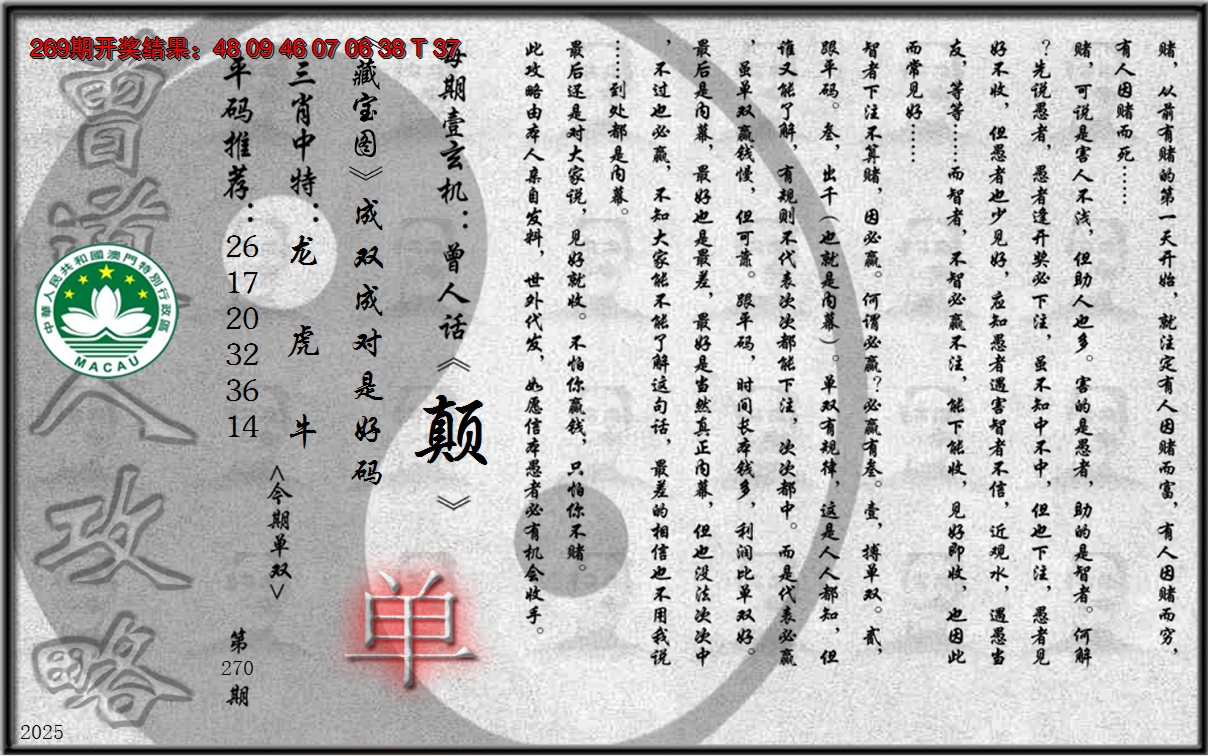 269期开奖结果：48 09 46 07 06 38 T 37
赌，从前有赌的第一天开始，就注定有人因赌而富，有人因赌而穷，
有人因赌而死……
赌，可说是害人不浅，但助人也多。害的是愚者，助的是智者。何解
？先说愚者，愚者逢开奖必下注，虽不知中不中，但也下注，愚者见
好不收，但愚者也少见好，应知愚者遇害智者不信，近观水，遇愚当
友，等等……而智者，不智必赢不注，能下能收，见好即收，也因此
而常见好……
智者下注不算赌，因必赢。何谓必赢？必赢有叁。壹，搏单双。贰，
跟平码。叁，出千（也就是内幕）。单双有规律，这是人人都知，但
谁又能了解，有规则不代表次次都能下注，次次都中。而是代表必赢
，虽单双赢钱慢，但可靠。跟平码，时间长本钱多，利润比单双好。
最后是内幕，最好也是最差，最好是当然真正内幕，但也没法次次中
，不过也必赢，不知大家能不能了解这句话，最差的相信也不用我说
……到处都是内幕。
最后还是对大家说，见好就收。不怕你赢钱，只怕你不赌。
此攻略由本人亲自发料，世外代发，如愿信本愚者必有机会收手。
每期壹玄机：曾人话《颠》
《藏宝图》成双成对是好码
单
三肖中特：龙 虎 牛
<今期单双>
平码推荐：26 17 20 32 36 14
第270期
曾道人攻略
中華人民共和國澳門特別行政區
MACAU
2025